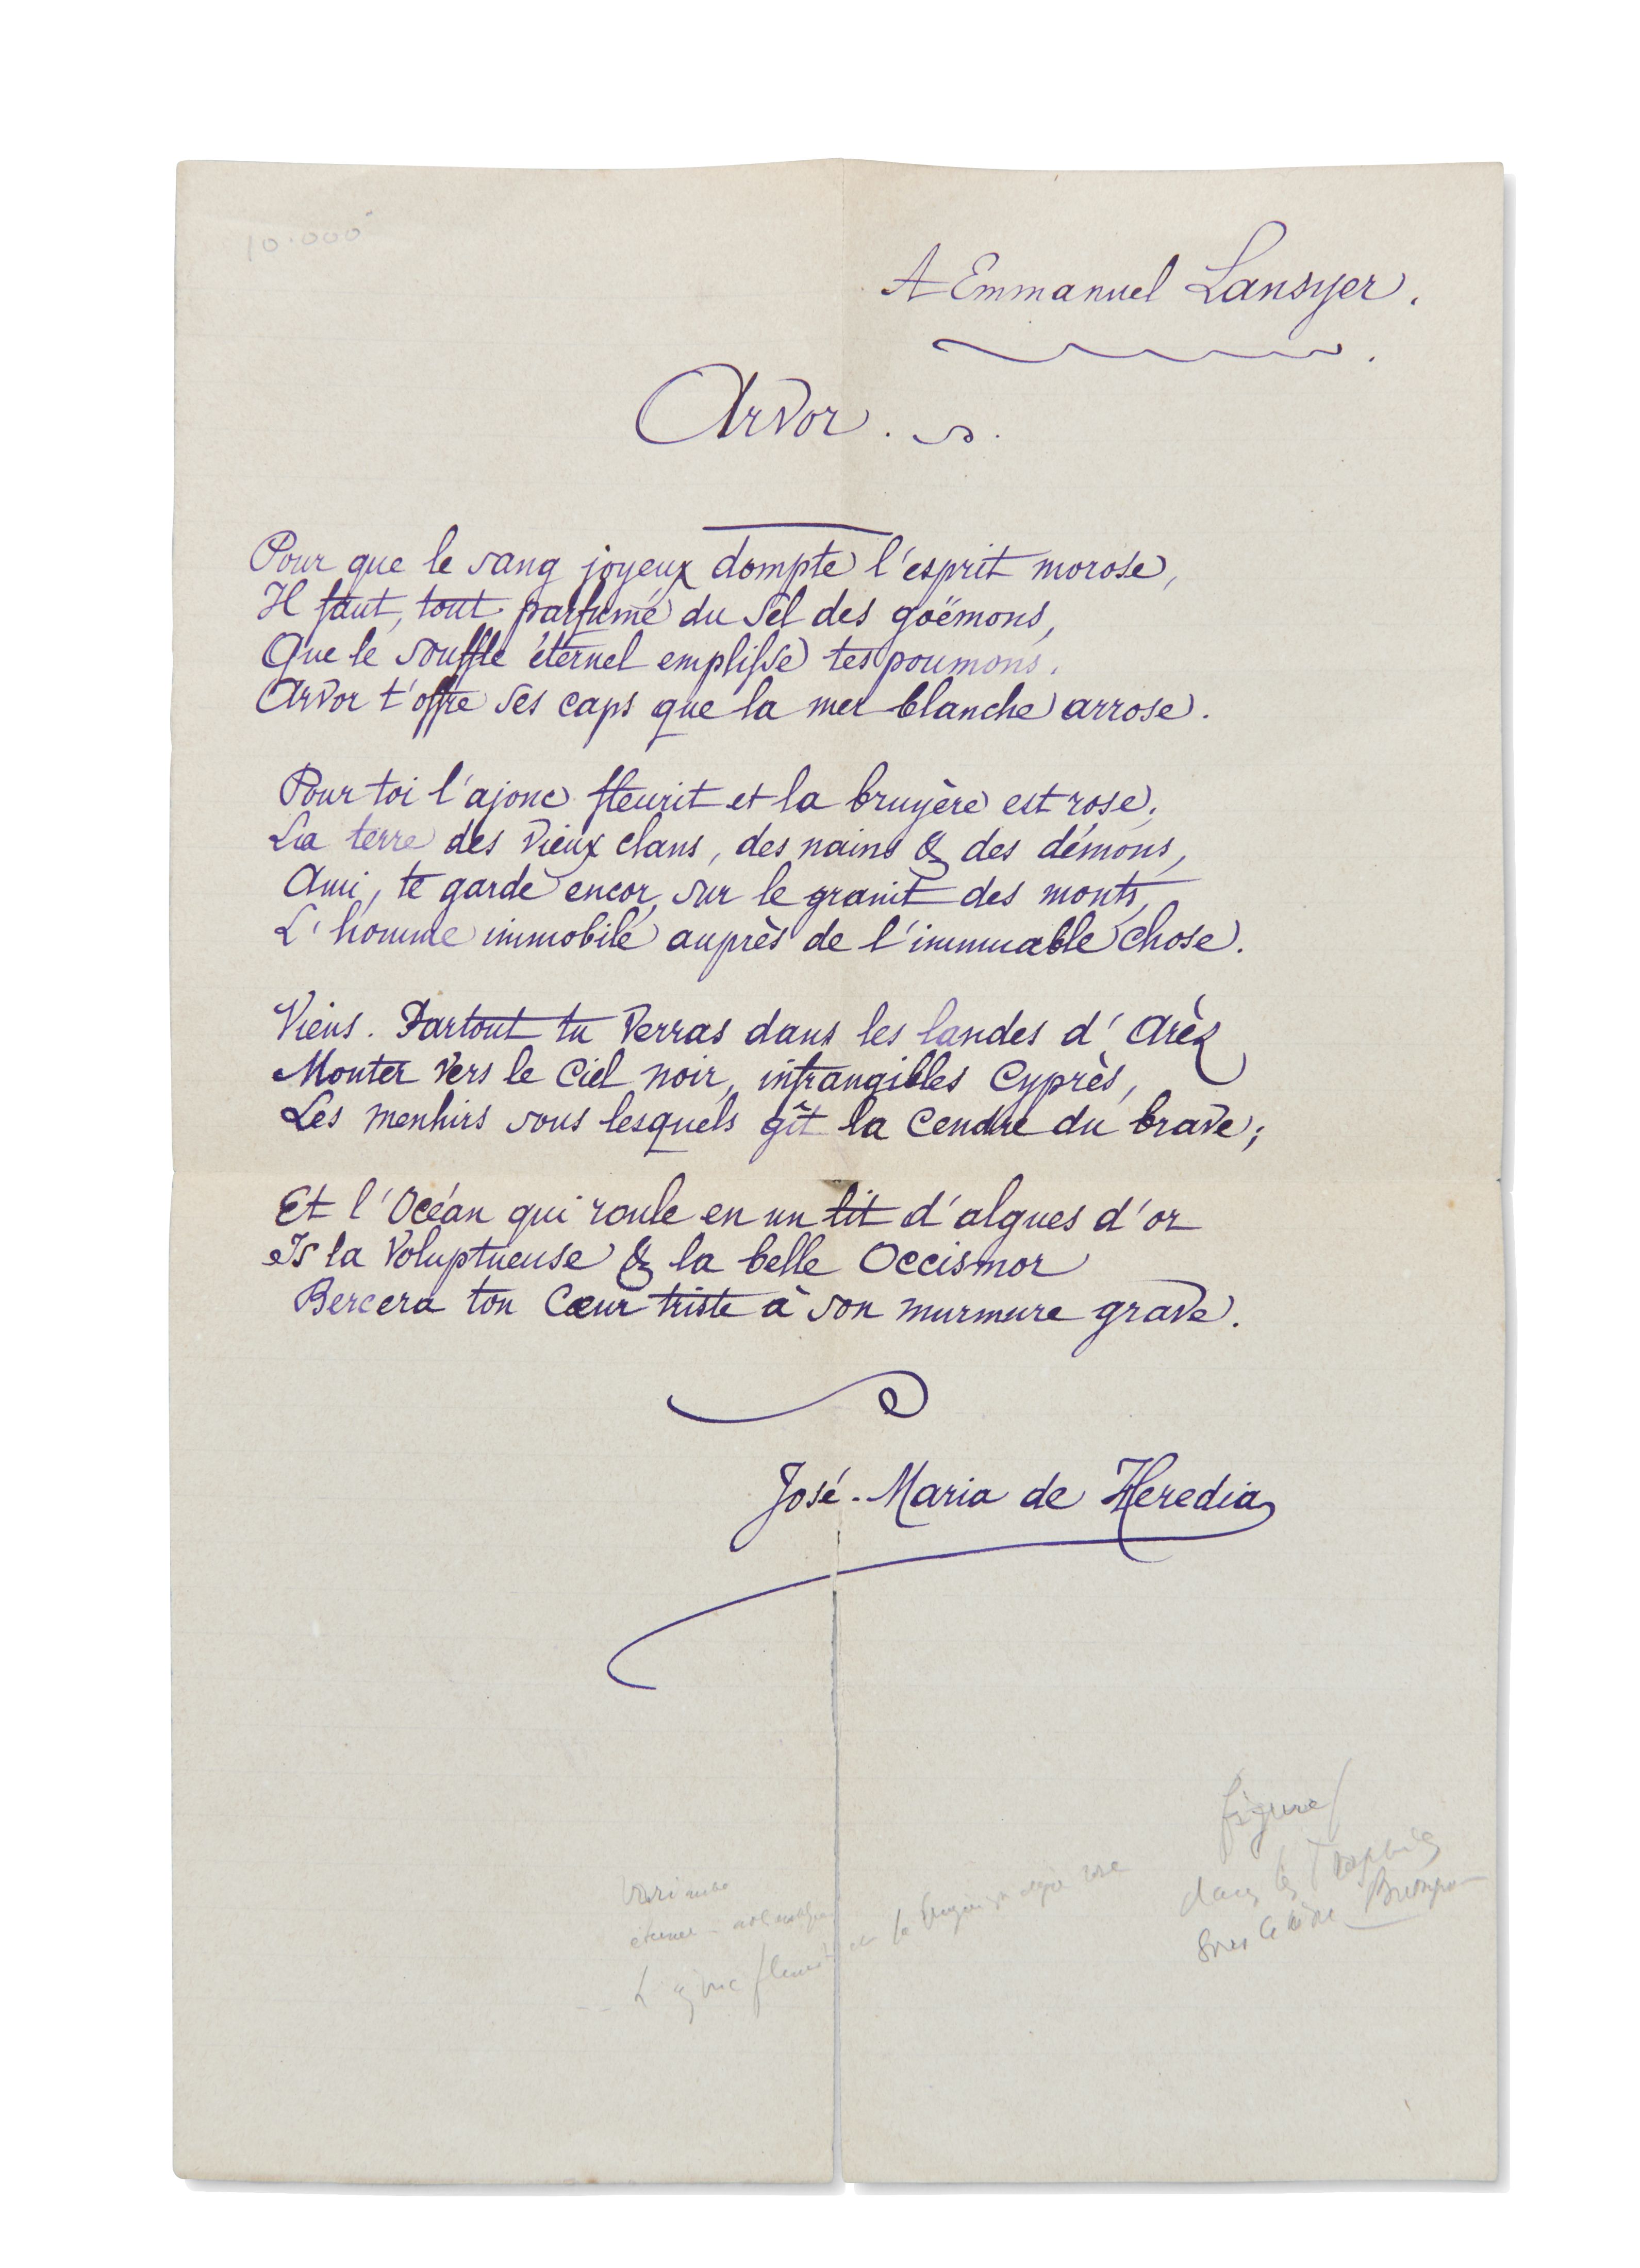 10.000
A Emmanuel Lansyer.
Arvor.
Pour que le sang joyeux dompte l'esprit morose,
Il faut, tout parfumé du sel des goëmons,
Que le souffle éternel emplisse tes poumons.
Arvor t'offre ses caps que la mer blanche arrose.
Pour toi l'ajonc fleurit et la bruyère est rose.
La terre des vieux clans, des nains & des démons,
Ami, te garde encor, sur le granit des monts,
L'homme immobile auprès de l'immuable chose.
Viens. Partout tu verras dans les landes d'Arèz
Monter vers le ciel noir, infrangibles cyprès,
Les menhirs sous lesquels gît la cendre du brave;
Et l'Océan qui roule en un lit d'algues d'or
Is la Voluptueuse & la belle Occismor
Bercera ton cœur triste à son murmure grave.
José-Maria de Heredia
figure
dans les Trophées
sous le titre
L'ajonc fleurit et la rose